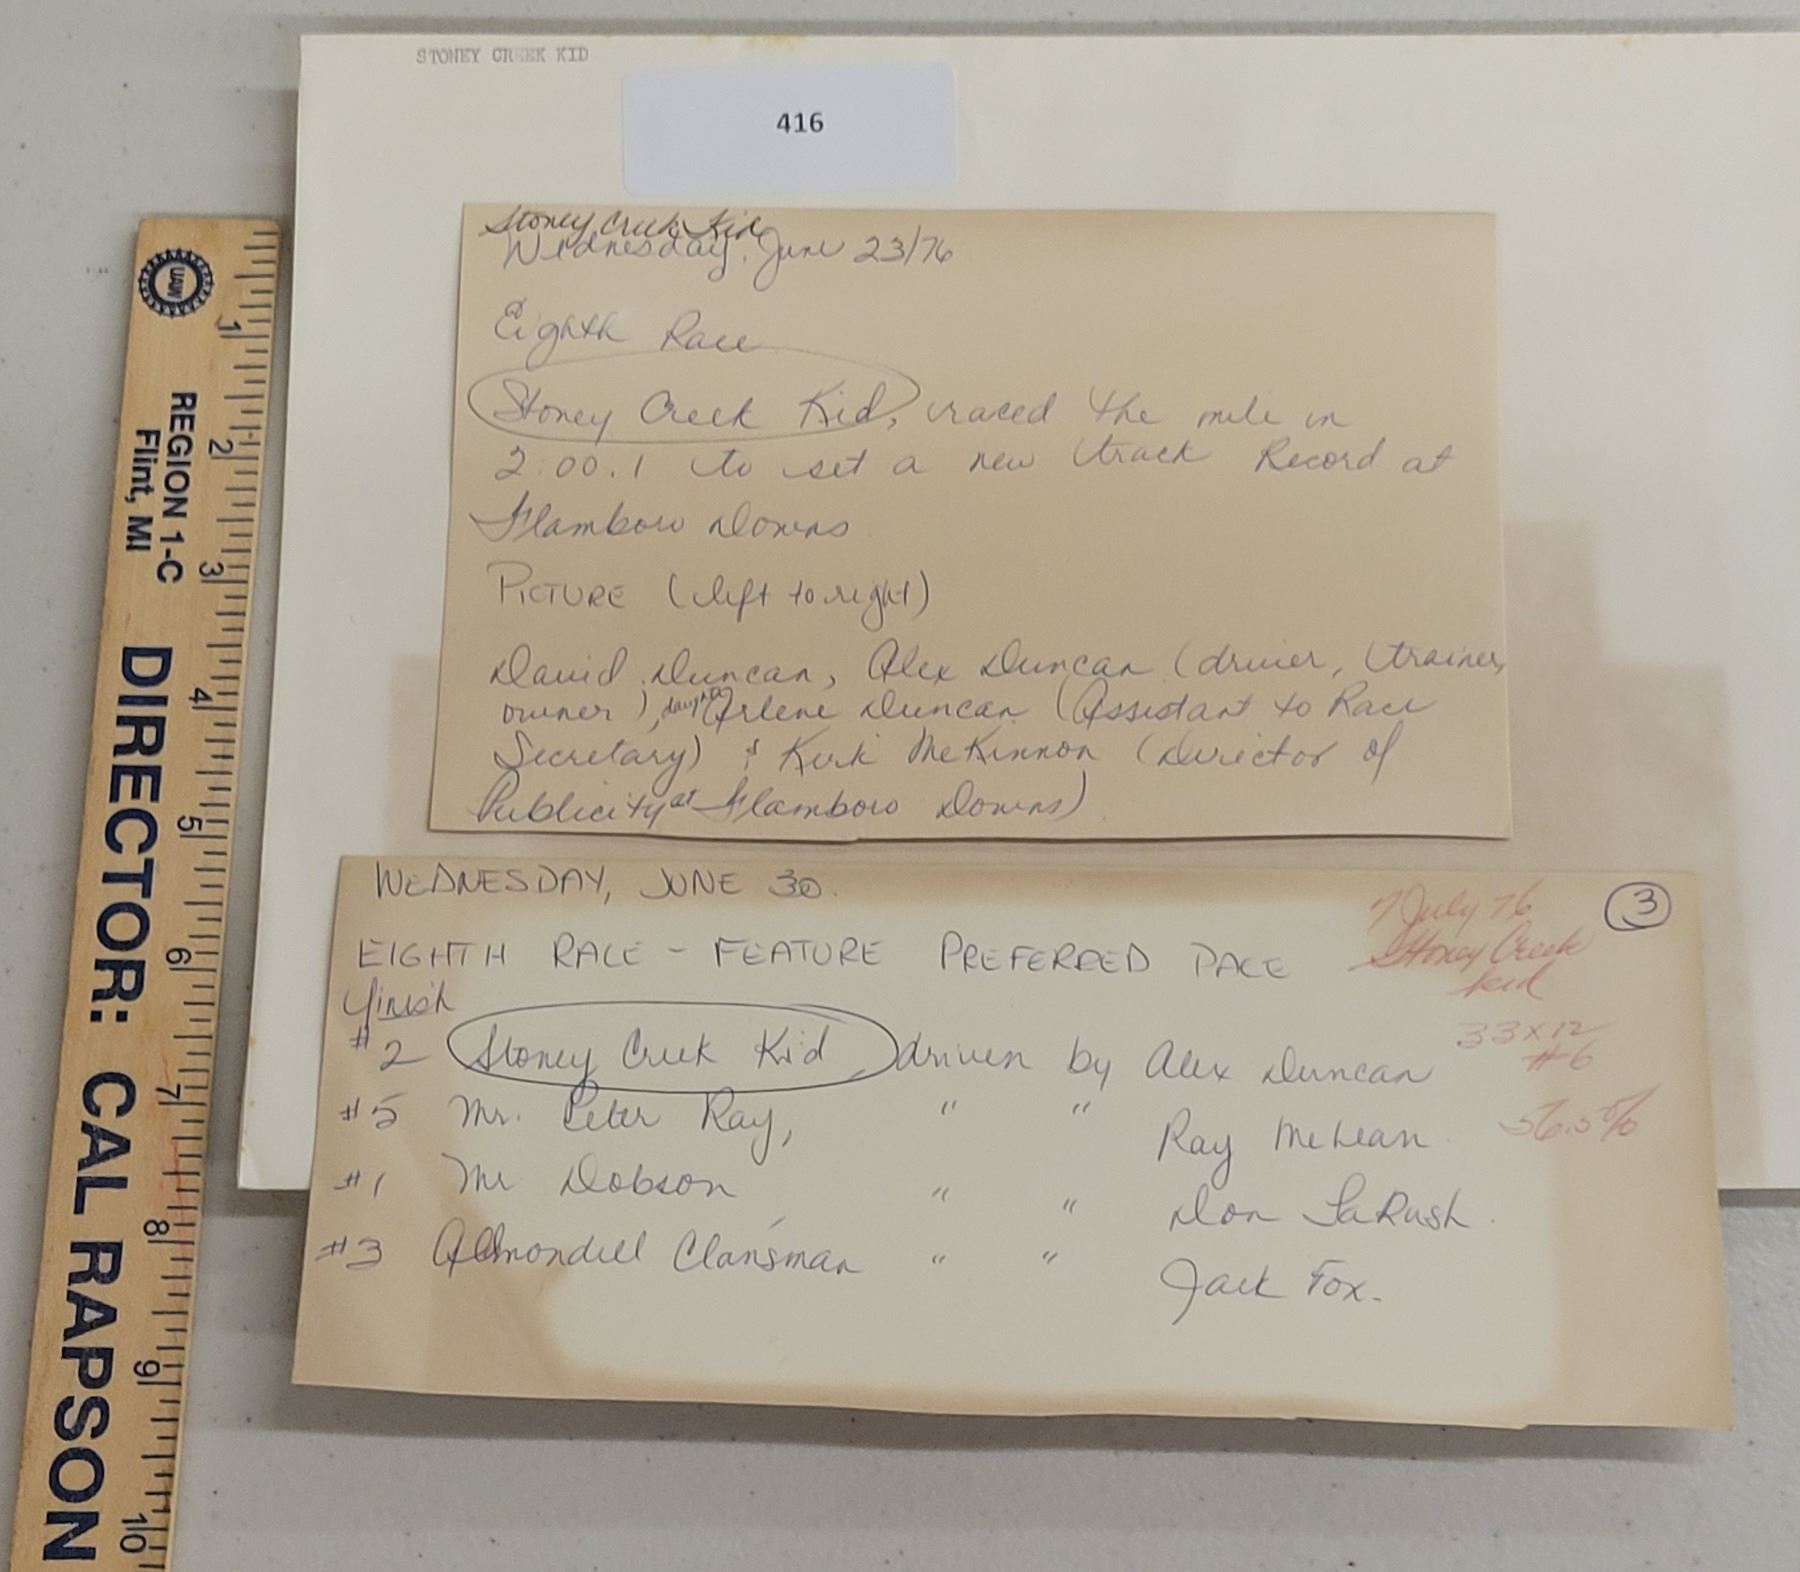 STONEY CREEK KID
416
Stoney Creek Kid
Wednesday, June 23/76
Eighth Race
Stoney Creek Kid, raced the mile in
2:00.1 to set a new track Record at
Flamboro Downs
PICTURE (left to right)
David Duncan, Alex Duncan (driver, trainer,
owner), daughter Arlene Duncan (Assistant to Race
Secretary) & Kirk McKinnon (Director of
Publicity at Flamboro Downs)
WEDNESDAY, JUNE 30.
EIGHTH RACE - FEATURE PREFERRED PACE
finish
#2 Stoney Creek Kid, driven by Alex Duncan
#5 Mr. Peter Ray, " " Ray McLean
#1 Mr Dobson " " Don LaRush.
#3 Almondell Clansman " " Jack Fox.
3
7 July 76
Stoney Creek
kid
33x12
#6
56.5%
UAW
REGION 1-C
Flint, MI
DIRECTOR: CAL RAPSON
1
2
3
4
5
6
7
8
9
10